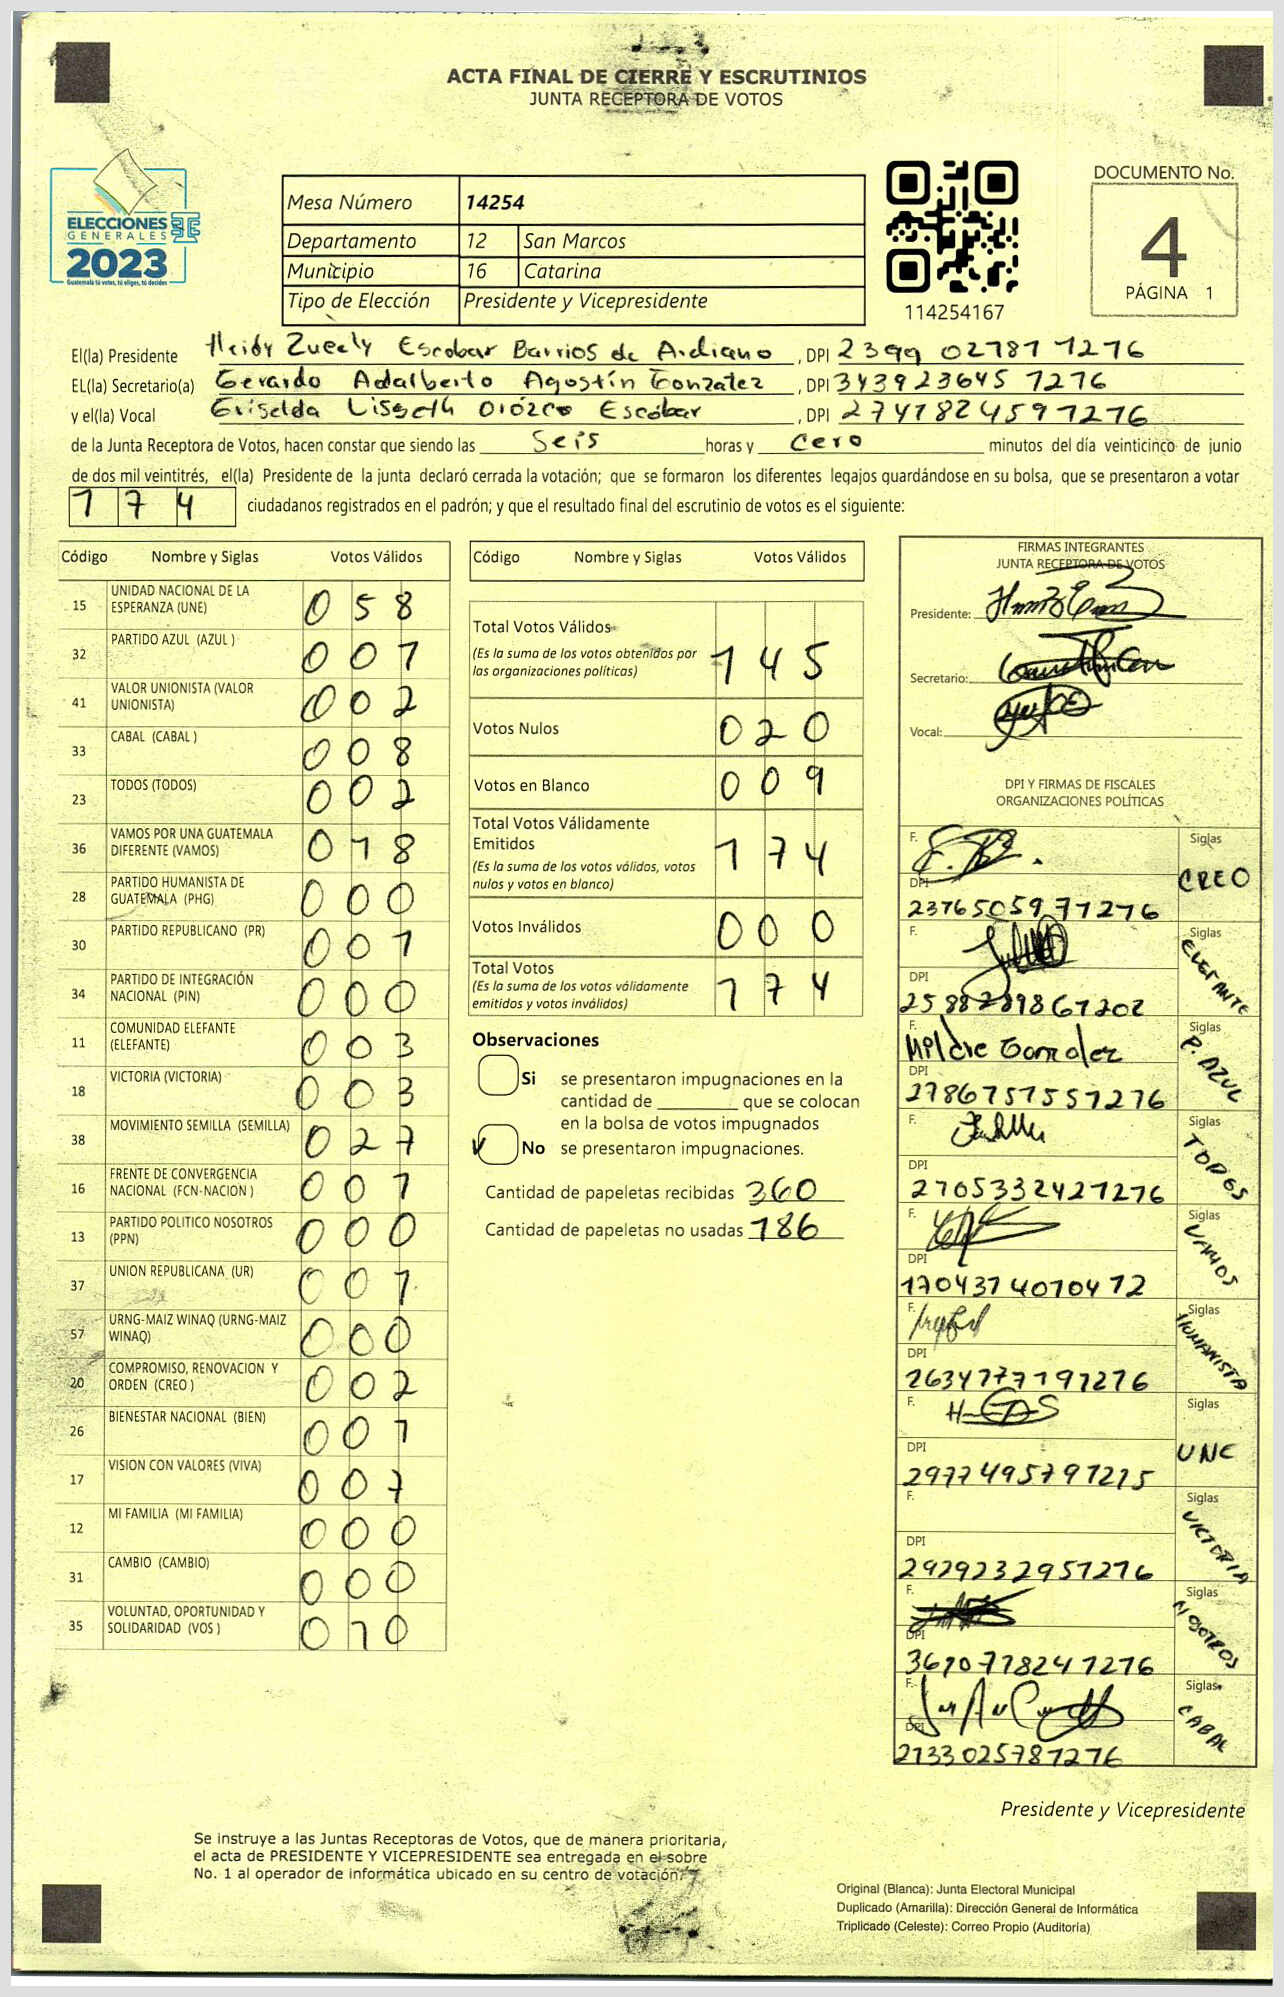 ACTA FINAL DE CIERRE Y ESCRUTINIOS
JUNTA RECEPTORA DE VOTOS
ELECCIONES
GENERALES
2023
Guatemala tú votes, tú eliges, tú decides
Mesa Número 14254
Departamento 12 San Marcos
Municipio 16 Catarina
Tipo de Elección Presidente y Vicepresidente
114254167
DOCUMENTO No.
4
PÁGINA 1
El(la) Presidente Heidy Zucely Escobar Barrios de Ardiano, DPI 2399 02781 1276
EL(la) Secretario(a) Gerardo Adalberto Agostín Gonzalez, DPI 343923645 1276
y el(la) Vocal Griselda Lisseth Orózco Escobar, DPI 2741824591276
de la Junta Receptora de Votos, hacen constar que siendo las Seis horas y Cero minutos del día veinticinco de junio
de dos mil veintitrés, el(la) Presidente de la junta declaró cerrada la votación; que se formaron los diferentes legajos guardándose en su bolsa, que se presentaron a votar
174 ciudadanos registrados en el padrón; y que el resultado final del escrutinio de votos es el siguiente:
Código Nombre y Siglas Votos Válidos
15 UNIDAD NACIONAL DE LA ESPERANZA (UNE) 058
32 PARTIDO AZUL (AZUL ) 001
41 VALOR UNIONISTA (VALOR UNIONISTA) 002
33 CABAL (CABAL ) 008
23 TODOS (TODOS) 002
36 VAMOS POR UNA GUATEMALA DIFERENTE (VAMOS) 018
28 PARTIDO HUMANISTA DE GUATEMALA (PHG) 000
30 PARTIDO REPUBLICANO (PR) 001
34 PARTIDO DE INTEGRACIÓN NACIONAL (PIN) 000
11 COMUNIDAD ELEFANTE (ELEFANTE) 003
18 VICTORIA (VICTORIA) 003
38 MOVIMIENTO SEMILLA (SEMILLA) 027
16 FRENTE DE CONVERGENCIA NACIONAL (FCN-NACION ) 001
13 PARTIDO POLITICO NOSOTROS (PPN) 000
37 UNION REPUBLICANA (UR) 001
57 URNG-MAIZ WINAQ (URNG-MAIZ WINAQ) 000
20 COMPROMISO, RENOVACION Y ORDEN (CREO ) 002
26 BIENESTAR NACIONAL (BIEN) 001
17 VISION CON VALORES (VIVA) 007
12 MI FAMILIA (MI FAMILIA) 000
31 CAMBIO (CAMBIO) 000
35 VOLUNTAD, OPORTUNIDAD Y SOLIDARIDAD (VOS ) 010
Código Nombre y Siglas Votos Válidos
Total Votos Válidos 145
(Es la suma de los votos obtenidos por
las organizaciones políticas)
Votos Nulos 020
Votos en Blanco 009
Total Votos Válidamente
Emitidos 174
(Es la suma de los votos válidos, votos
nulos y votos en blanco)
Votos Inválidos 000
Total Votos 174
(Es la suma de los votos válidamente
emitidos y votos inválidos)
Observaciones
Si se presentaron impugnaciones en la
cantidad de ________ que se colocan
en la bolsa de votos impugnados
No se presentaron impugnaciones.
Cantidad de papeletas recibidas 360
Cantidad de papeletas no usadas 186
FIRMAS INTEGRANTES
JUNTA RECEPTORA DE VOTOS
Presidente:
Secretario:
Vocal:
DPI Y FIRMAS DE FISCALES
ORGANIZACIONES POLÍTICAS
F. Siglas CREO
DPI 2376505971276
F. Siglas ELEFANTE
DPI 2588289861202
F. Hildie Gonzalez Siglas P. AZUL
DPI 2786757551276
F. Siglas TODOS
DPI 2705332421276
F. Siglas VAMOS
DPI 1704374070472
F. Siglas HUMANISTA
DPI 2634777191276
F. Siglas UNE
DPI 2977495791215
F. Siglas VICTORIA
DPI 2929232951276
F. Siglas NOSOTROS
DPI 3610778241276
F. Siglas CABAL
DPI 2133025781276
Presidente y Vicepresidente
Se instruye a las Juntas Receptoras de Votos, que de manera prioritaria,
el acta de PRESIDENTE Y VICEPRESIDENTE sea entregada en el sobre
No. 1 al operador de informática ubicado en su centro de votación.
Original (Blanca): Junta Electoral Municipal
Duplicado (Amarilla): Dirección General de Informática
Triplicado (Celeste): Correo Propio (Auditoría)